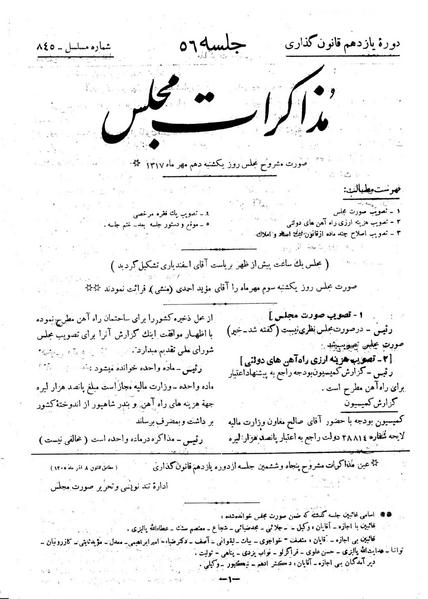 دورهٔ یازدهم قانون گذاری
جلسه ۵۶
شماره مسلسل - ۸۴۵
مذاکرات مجلس
صورت مشروح مجلس روز یکشنبه دهم مهر ماه ۱۳۱۷ *
فهرست مطالب:
۱ - تصویب صورت مجلس
۲ - تصویب هزینه ارزی راه آهن های دولتی
۳ - تصویب اصلاح چند ماده از قانون ثبت اسناد و املاک
۴ - تصویب یک فقره مرخصی
۵ - موقع و دستور جلسه بعد - ختم جلسه.
(مجلس یک ساعت پیش از ظهر بریاست آقای اسفندیاری تشکیل گردید)
صورت مجلس روز یکشنبه سوم مهرماه را آقای مؤید احمدی (منشی) قرائت نمودند **
۱ - تصویب صورت مجلس]
رئیس - در صورت مجلس نظری نیست (گفته شد - خیر)
صورت مجلس تصویب شد.
[۲ - تصویب هزینه ارزی راه آهن های دولتی]
رئیس - گزارش کمیسیون بودجه راجع به پیشنهاد اعتبار
برای راه آهن مطرح است.
گزارش کمیسیون
کمیسیون بودجه با حضور آقای صالح معاون وزارت مالیه
لایحه شماره ۳۸۸۱۴ دولت راجع به اعتبار پانصد هزار لیره
از محل ذخیره کشور را برای ساختمان راه آهن مطرح نموده
با اظهار موافقت اینک گزارش آنرا برای تصویب مجلس
شورای ملی تقدیم میدارد.
رئیس - ماده واحده خوانده میشود:
ماده واحده - وزارت مالیه مجاز است مبلغ پانصد هزار لیره
جهة هزینه های راه آهن و بندر شاهپور از اندوختهٔ کشور
برداشت و بمصرف برساند
رئیس - مذاکره در ماده واحده است (مخالفی نیست)
* عین مذاکرات مشروح پنجاه و ششمین جلسه از دوره یازدهم قانون گذاری
(مطابق قانون ۸ آذر ماه ۱۳۰۵)
ادارهٔ تند نویسی و تحریر صورت مجلس
** اسامی غائبین جلسه گذشته که ضمن صورت مجلس خوانده شده:
غائبین با اجازه - آقایان: وکیل - جلائی - مجد ضیائی - شجاع - معتصم سنک - عطاءالله پالیزی.
غائبین بی اجازه - آقایان: منصف - خواجوی - بیات - لیقوانی - آصف - دکتر ضیاء - امیر ابراهیمی - معدل - مؤید ثابتی - کازرونیان -
توانا - هدایت الله پالیزی - حسن علوی - قراگزلو - نواب یزدی - پناهی - تولیت.
دیر آمدگان بی اجازه - آقایان: دکتر ادهم - نیک پور - وکیلی.
-۱-